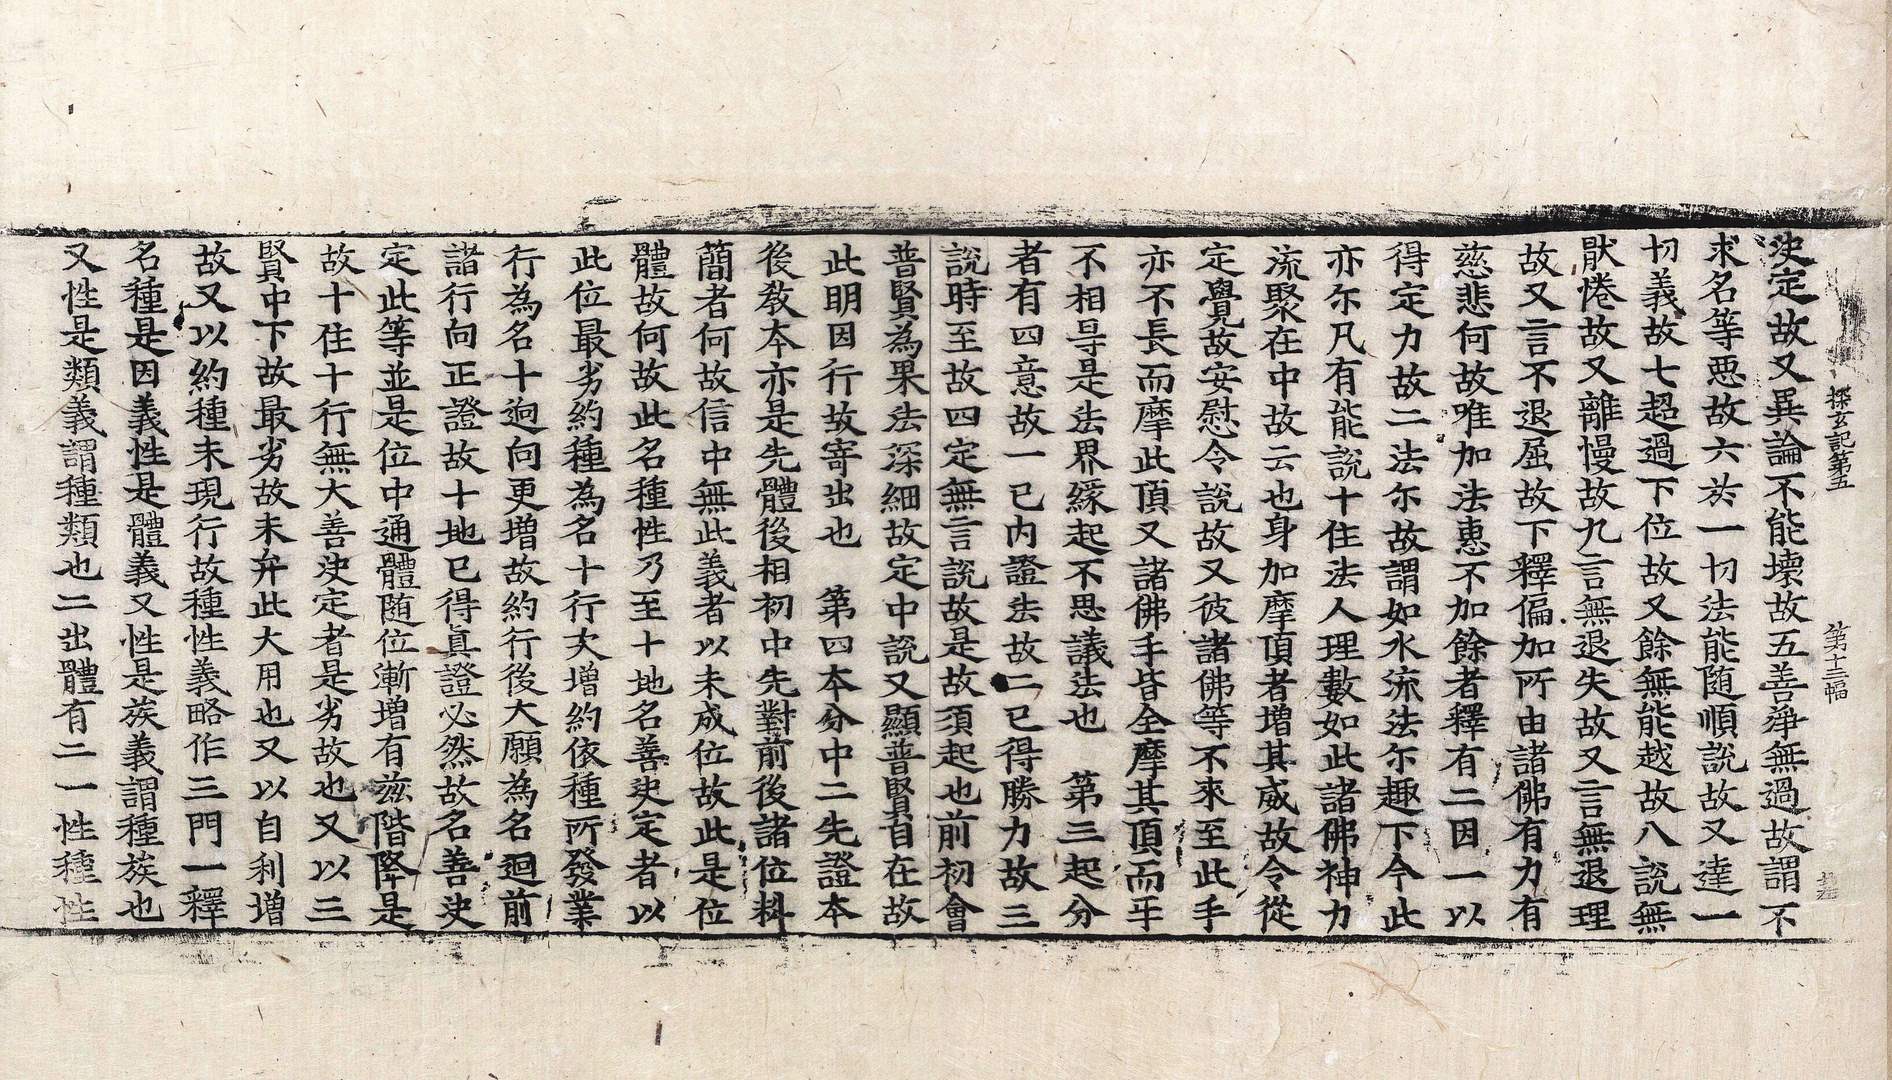 探玄記第五 第十三幅
决定故又異論不能壞故五善淨無過故謂不
求名等惡故六於一切法能随順說故又達一
切義故七超過下位故又餘無能越故八說無
猒惓故又離慢故九言無退失故又言無退理
故又言不退屈故下釋偏加所由諸佛有力有
慈悲何故唯加法惠不加餘者釋有二因一以
得定力故二法尓故謂如水流法尓趣下今此
亦尓凡有能說十住法人理數如此諸佛神力
流聚在中故云也身加摩頂者增其威故令從
定覺故安慰令說故又彼諸佛等不來至此手
亦不長而摩此頂又諸佛手皆全摩其頂而手
不相导是法界緣起不思議法也 第三起分
者有四意故一已内證法故二已得勝力故三
說時至故四定無言說故是故須起也前初會
普賢為果法深細故定中說又顯普賢自在故
此明因行故寄出也 第四本分中二先證本
後教本亦是先體後相初中先對前後諸位料
簡者何故信中無此義者以未成位故此是位
體故何故此名種性乃至十地名善决定者以
此位最劣約種為名十行次增約依種所發業
行為名十迴向更增故約行後大願為名迴前
諸行向正證故十地已得真證必然故名善决
定此等並是位中通體随位漸增有茲階降是
故十住十行無大善决定者是劣故也又以三
賢中下故最劣故未弁此大用也又以自利增
故又以約種未現行故種性義略作三門一釋
名種是因義性是體義又性是族義謂種族也
又性是類義謂種類也二出體有二一性種性